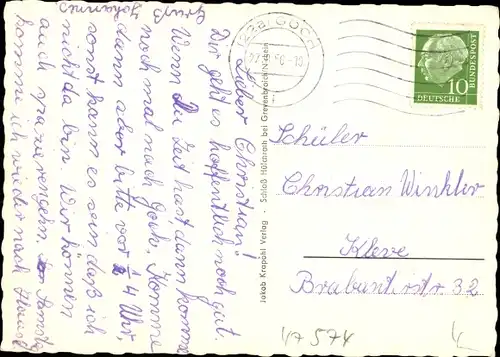 Lieber Christian!
Dir geht es hoffentlich noch gut.
Wenn Du Zeit hast dann komme
noch mal nach Goch. Komme
dann aber bitte vor 4 Uhr,
sonst kann es sein daß ich
nicht da bin. Wir können
auch spazierengehn.
komme ich wieder nach Hause
Gruß
Johannes
GOCH
Jakob Krapohl Verlag · Schloß Hülchrath bei Grevenbroich/Neben
10
DEUTSCHE
BUNDESPOST
Schüler
Christian Winkler
Kleve
Brabanterstr 32